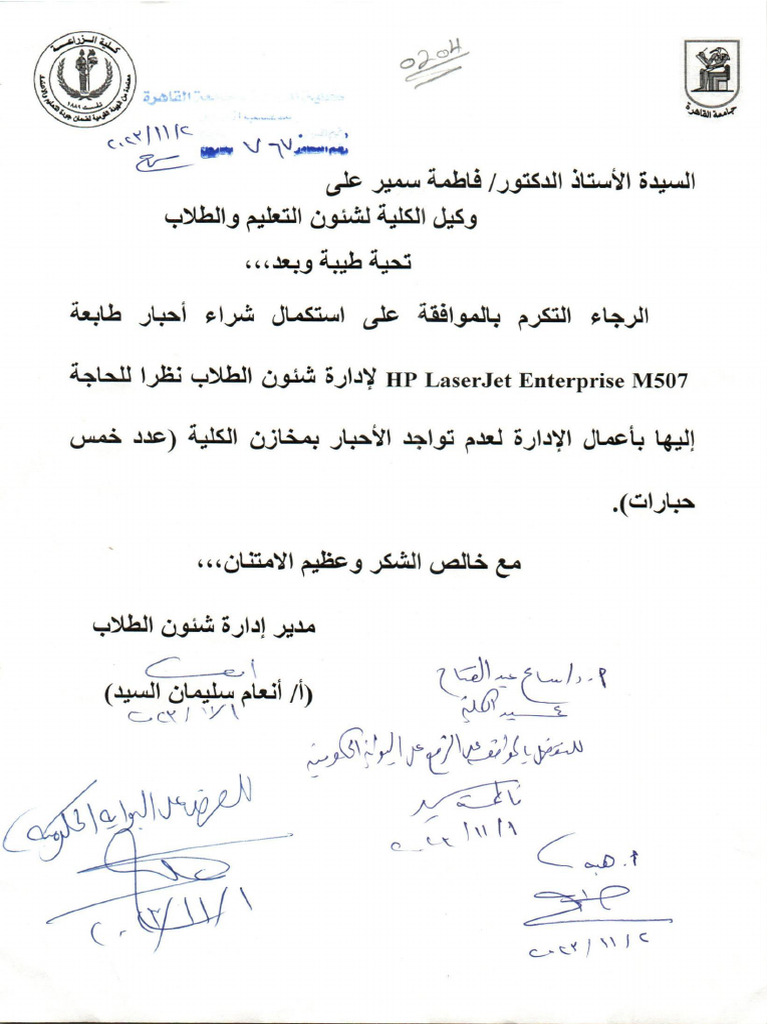 كلية الزراعة
معتمدة من الهيئة القومية لضمان جودة التعليم والاعتماد
جامعة القاهرة
0204
جامعة القاهرة
٧٦٧
٢٠٢٣/١١/٢
السيدة الأستاذ الدكتور/ فاطمة سمير على
وكيل الكلية لشئون التعليم والطلاب
تحية طيبة وبعد،،،
الرجاء التكرم بالموافقة على استكمال شراء أحبار طابعة
HP LaserJet Enterprise M507 لإدارة شئون الطلاب نظرا للحاجة
إليها بأعمال الإدارة لعدم تواجد الأحبار بمخازن الكلية (عدد خمس
حبارات).
مع خالص الشكر وعظيم الامتنان،،،
مدير إدارة شئون الطلاب
(أ/ أنعام سليمان السيد)
٢٠٢٣/١١/١
أ.د/ سامح عبد الفتاح
عميد الكلية
للتفضل بالموافقة على الرفع على البوابة الحكومية
فاطمة سمير
٢٠٢٣/١١/١
للعرض على البوابة الحكومية
٢٠٢٣/١١/١
أ. هبة
٢٠٢٣/١١/٢